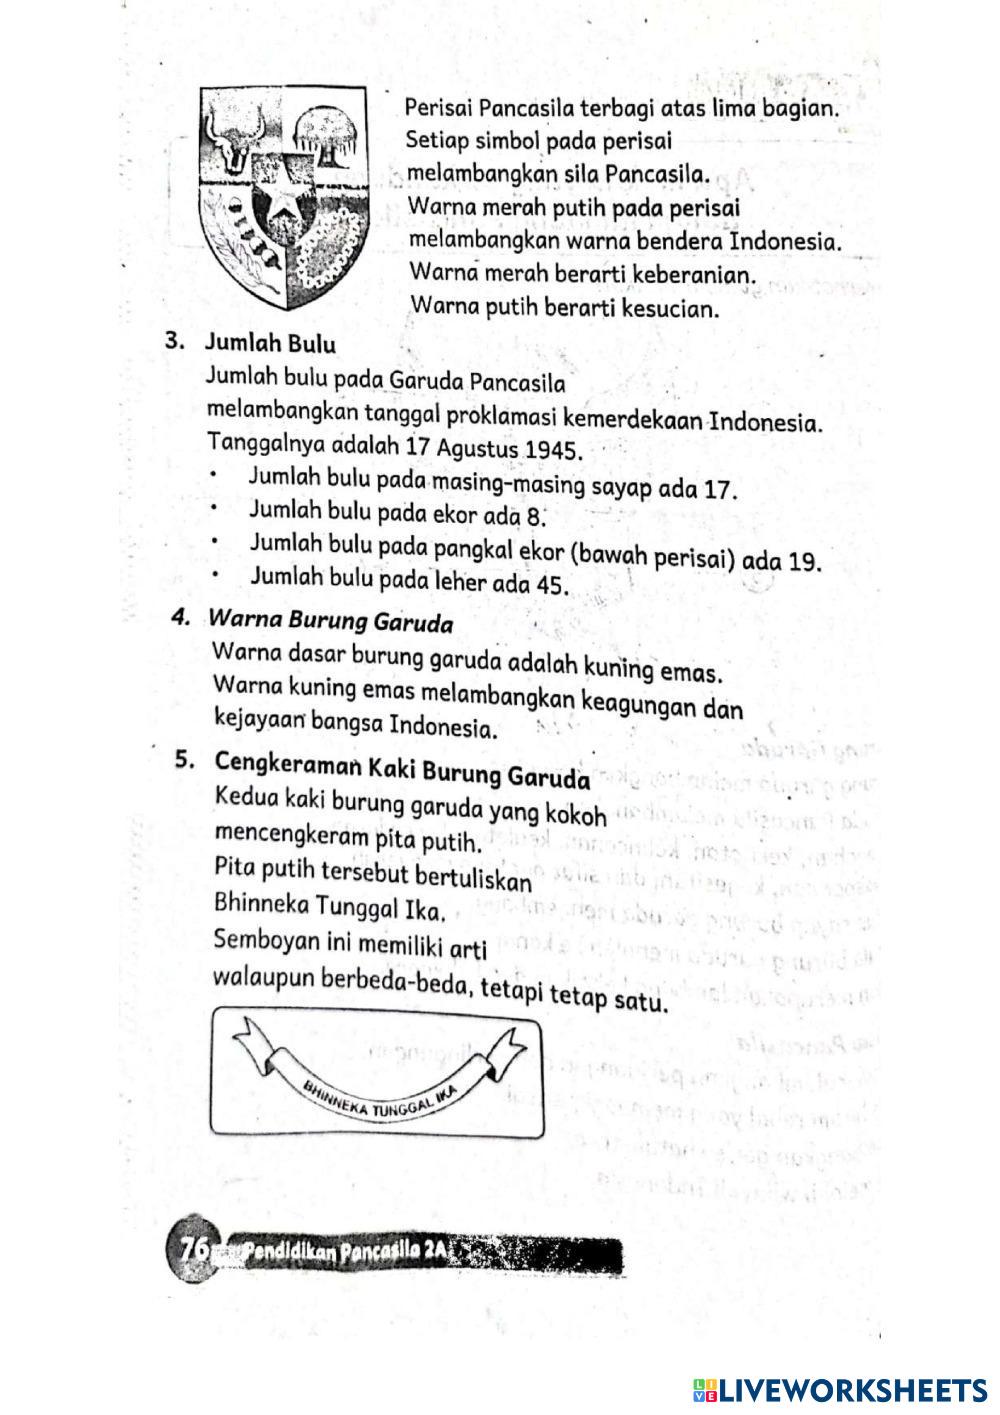 Perisai Pancasila terbagi atas lima bagian.
Setiap simbol pada perisai
melambangkan sila Pancasila.
Warna merah putih pada perisai
melambangkan warna bendera Indonesia.
Warna merah berarti keberanian.
Warna putih berarti kesucian.
3. Jumlah Bulu
Jumlah bulu pada Garuda Pancasila
melambangkan tanggal proklamasi kemerdekaan Indonesia.
Tanggalnya adalah 17 Agustus 1945.
• Jumlah bulu pada masing-masing sayap ada 17.
• Jumlah bulu pada ekor ada 8.
• Jumlah bulu pada pangkal ekor (bawah perisai) ada 19.
• Jumlah bulu pada leher ada 45.
4. Warna Burung Garuda
Warna dasar burung garuda adalah kuning emas.
Warna kuning emas melambangkan keagungan dan
kejayaan bangsa Indonesia.
5. Cengkeraman Kaki Burung Garuda
Kedua kaki burung garuda yang kokoh
mencengkeram pita putih.
Pita putih tersebut bertuliskan
Bhinneka Tunggal Ika.
Semboyan ini memiliki arti
walaupun berbeda-beda, tetapi tetap satu.
BHINNEKA TUNGGAL IKA
76 Pendidikan Pancasila 2A
LIVEWORKSHEETS